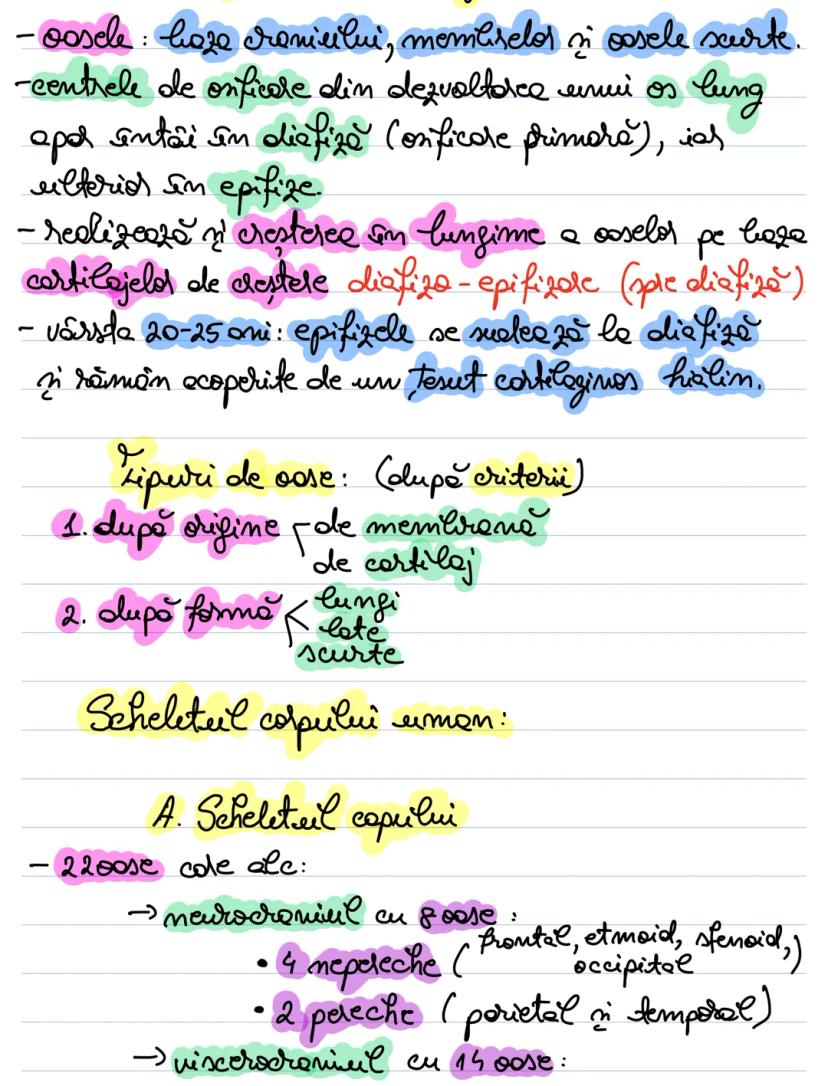 - oasele: baza craniului, membrelor și oasele scurte.
- centrele de osificare din dezvoltarea unui os lung
apar întâi în diafiză (osificare primară), iar
ulterior în epifize.
- realizează și creșterea în lungime a oaselor pe baza
cartilajelor de creștere diafizo-epifizare (spre diafiză)
- vârsta 20-25 ani: epifizele se sudează la diafiză
și rămân acoperite de un țesut cartilaginos hialin.
Tipuri de oase: (după criterii)
1. după origine de membrană
de cartilaj
2. după formă < lungi
late
scurte
Scheletul corpului uman:
A. Scheletul capului
- 22 oase care alc:
→ neurocraniul cu 8 oase:
• 4 nepereche (frontal, etmoid, sfenoid,
occipital)
• 2 pereche (parietal și temporal)
→ viscerocraniul cu 14 oase: